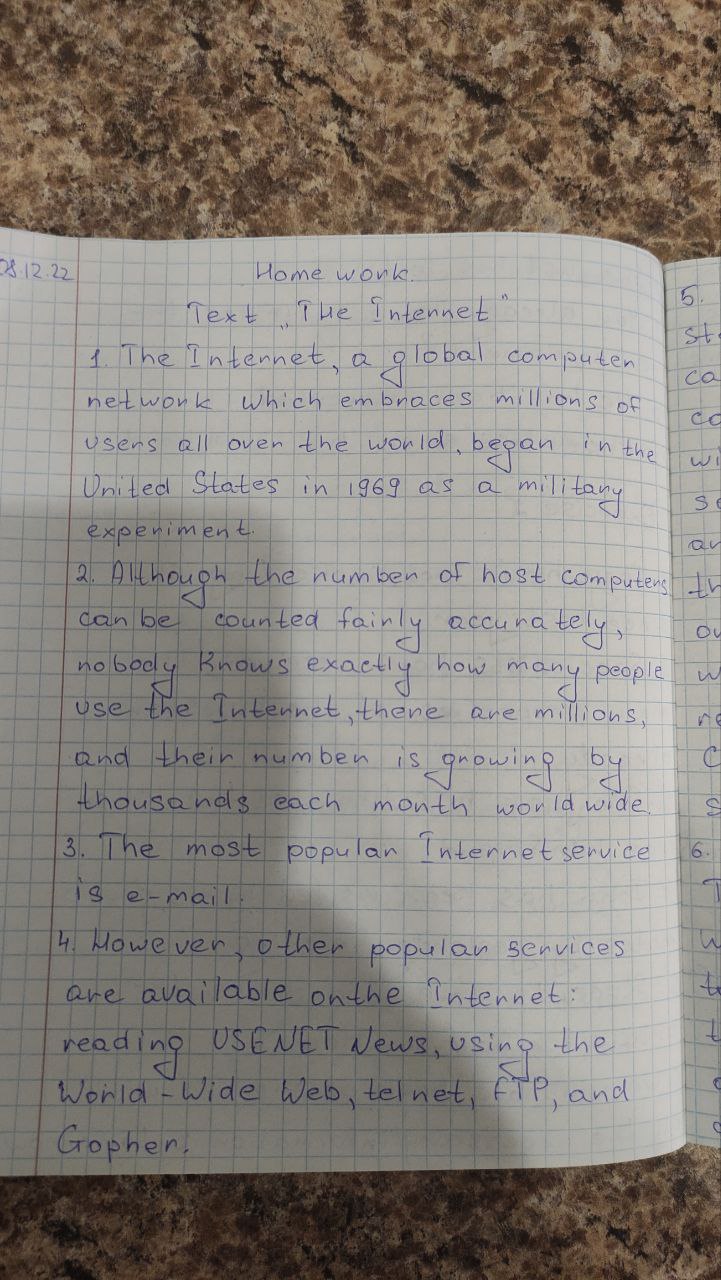 08.12.22
Home work.
Text „The Internet"
1. The Internet, a global computer
network which embraces millions of
users all over the world, began in the
United States in 1969 as a military
experiment.
2. Although the number of host computers
can be counted fairly accurately,
nobody knows exactly how many people
use the Internet, there are millions,
and their number is growing by
thousands each month world wide.
3. The most popular Internet service
is e-mail.
4. However, other popular services
are available on the Internet:
reading USENET News, using the
World-Wide Web, telnet, FTP, and
Gopher.
5.
6.